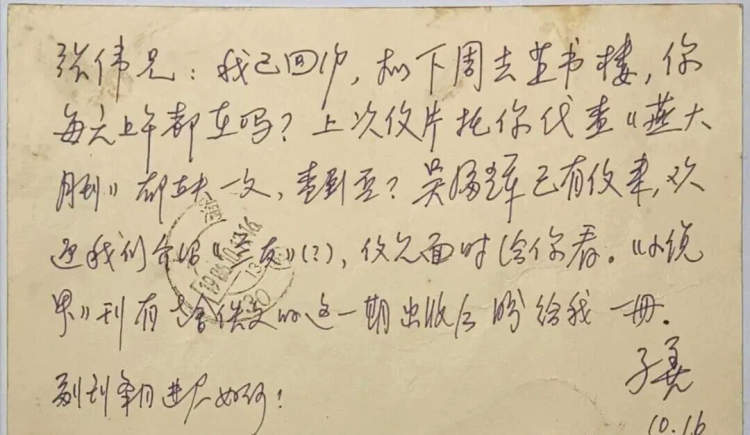 张伟兄：我已回沪，拟下周去藏书楼，你
每天上午都在吗？上次信片托你代查《燕大
月刊》郁达夫一文，查到否？吴福辉已有信来，欢
迎我们合写《》(？)，信见面时给你看。《小说
界》刊有老舍佚文的这一期出版后盼给我一册。
子善
副刊争目进展如何！
10.16